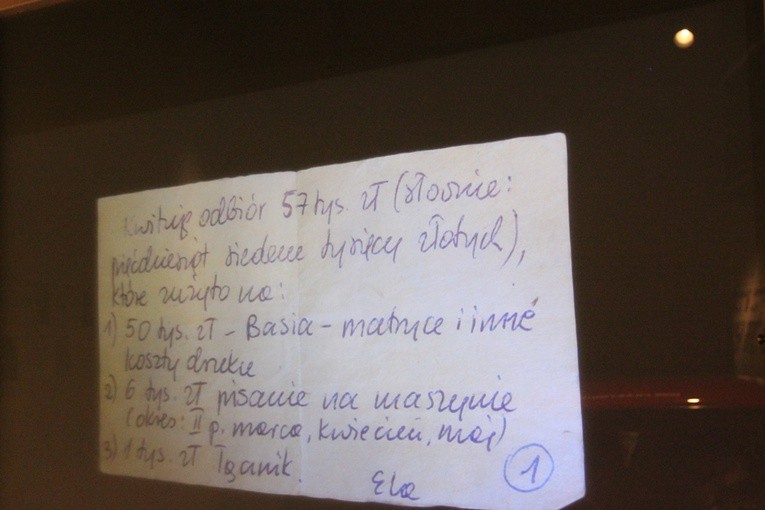 Kwituję odbiór 57 tys. zł (słownie:
pięćdziesiąt siedem tysięcy złotych),
które zużyto na:
1) 50 tys. zł - Basia - matryce i inne
koszty druku
2) 6 tys. zł pisanie na maszynie
(okres: II p. marca, kwiecień, maj)
3) 1 tys. zł Łącznik.
Ela
1